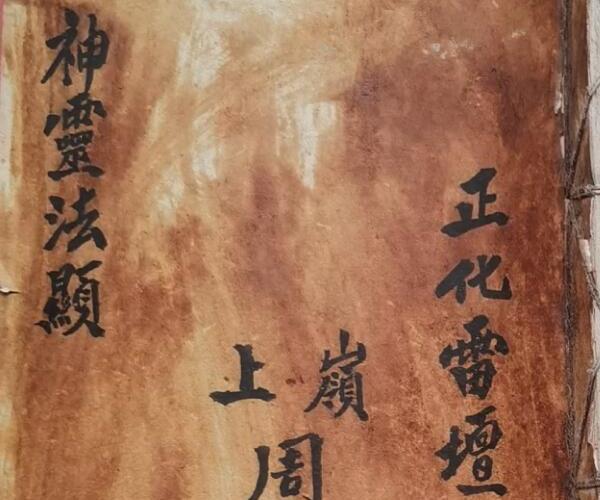 正化雷壇
嶺上
周
神靈法顯